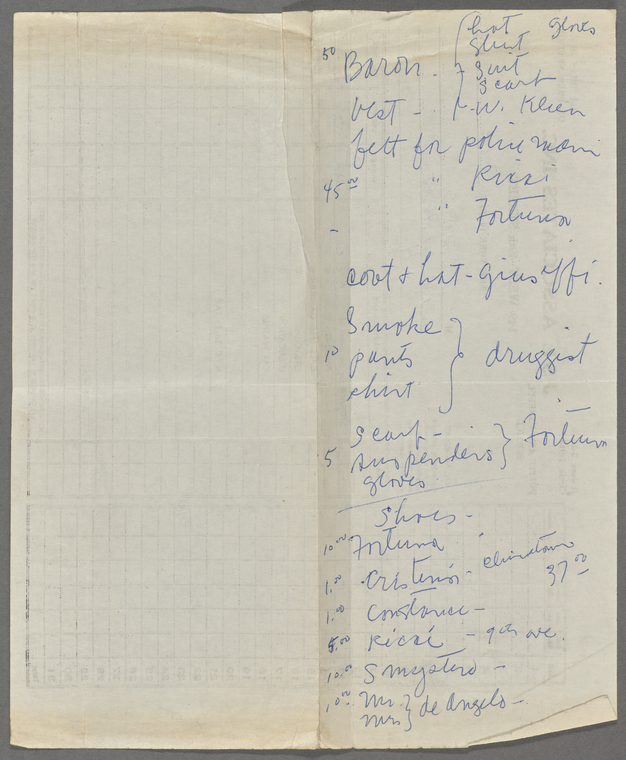 hat gloves
shirt
50 Baron. { suit
scarf
Vest - W. Klein
felt for policeman
45.00 " Ricci
- " Fortuna
coat & hat - Giuseffi.
Smoke
10 pants } druggist
shirt
Scarf -
5 suspenders } Fortuna
gloves
Shoes -
10.00 Fortuna
1.00 Cristenia - Chinatown 37.00
1.00 Constance -
5.00 Ricci - 9th ave.
10.00 Smystero -
10.00 Mr. } de Angelo -
Mrs